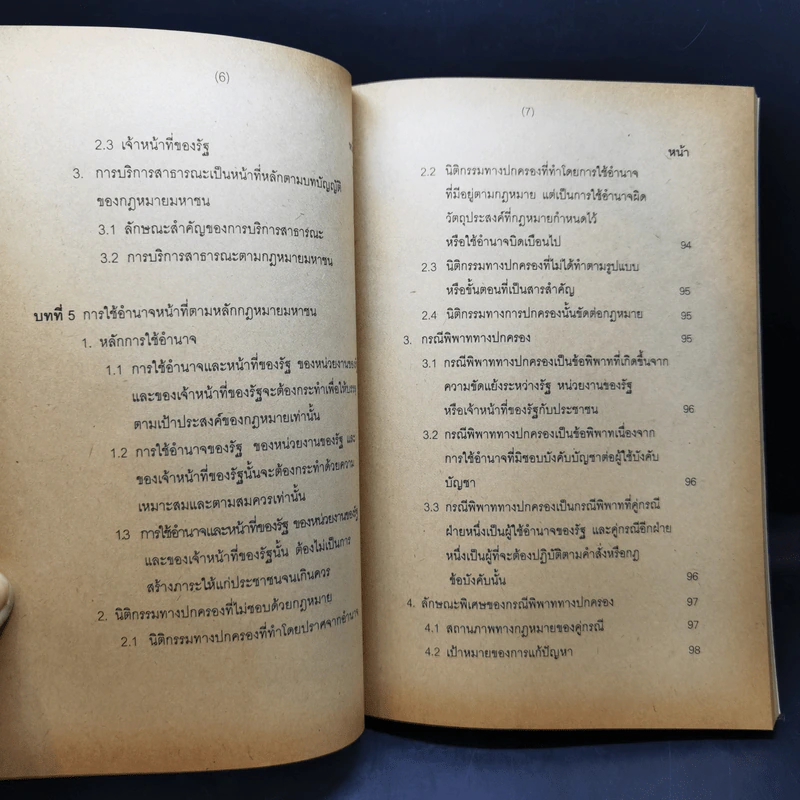 (6)
2.3 เจ้าหน้าที่ของรัฐ
3. การบริการสาธารณะเป็นหน้าที่หลักตามบทบัญญัติ
ของกฎหมายมหาชน
3.1 ลักษณะสำคัญของการบริการสาธารณะ
3.2 การบริการสาธารณะตามกฎหมายมหาชน
บทที่ 5 การใช้อำนาจหน้าที่ตามหลักกฎหมายมหาชน
1. หลักการใช้อำนาจ
1.1 การใช้อำนาจและหน้าที่ของรัฐ ของหน่วยงานของรัฐ
และของเจ้าหน้าที่ของรัฐจะต้องกระทำเพื่อให้
ตามเป้าประสงค์ของกฎหมายเท่านั้น
1.2 การใช้อำนาจของรัฐ ของหน่วยงานของรัฐ และ
ของเจ้าหน้าที่ของรัฐนั้นจะต้องกระทำด้วยความ
เหมาะสมและตามสมควรเท่านั้น
1.3 การใช้อำนาจและหน้าที่ของรัฐ ของหน่วยงานของรัฐ
และของเจ้าหน้าที่ของรัฐนั้น ต้องไม่เป็นการ
สร้างภาระให้แก่ประชาชนจนเกินควร
2. นิติกรรมทางปกครองที่ไม่ชอบด้วยกฎหมาย
2.1 นิติกรรมทางปกครองที่ทำโดยปราศจากอำนาจ
(7)
หน้า
2.2 นิติกรรมทางปกครองที่ทำโดยการใช้อำนาจ
ที่มีอยู่ตามกฎหมาย แต่เป็นการใช้อำนาจผิด
วัตถุประสงค์ที่กฎหมายกำหนดไว้
หรือใช้อำนาจบิดเบือนไป 94
2.3 นิติกรรมทางปกครองที่ไม่ได้ทำตามรูปแบบ
หรือขั้นตอนที่เป็นสารสำคัญ 95
2.4 นิติกรรมทางการปกครองนั้นขัดต่อกฎหมาย 95
3. กรณีพิพาททางปกครอง 95
3.1 กรณีพิพาททางปกครองเป็นข้อพิพาทที่เกิดขึ้นจาก
ความขัดแย้งระหว่างรัฐ หน่วยงานของรัฐ
หรือเจ้าหน้าที่ของรัฐกับประชาชน 96
3.2 กรณีพิพาททางปกครองเป็นข้อพิพาทเนื่องจาก
การใช้อำนาจที่มีชอบบังคับบัญชาต่อผู้ใช้บังคับ
บัญชา 96
3.3 กรณีพิพาททางปกครองเป็นกรณีพิพาทที่คู่กรณี
ฝ่ายหนึ่งเป็นผู้ใช้อำนาจของรัฐ และคู่กรณีอีกฝ่าย
หนึ่งเป็นผู้ที่จะต้องปฏิบัติตามคำสั่งหรือกฎ
ข้อบังคับนั้น 96
4. ลักษณะพิเศษของกรณีพิพาททางปกครอง 97
4.1 สถานภาพทางกฎหมายของคู่กรณี 97
4.2 เป้าหมายของการแก้ปัญหา 98